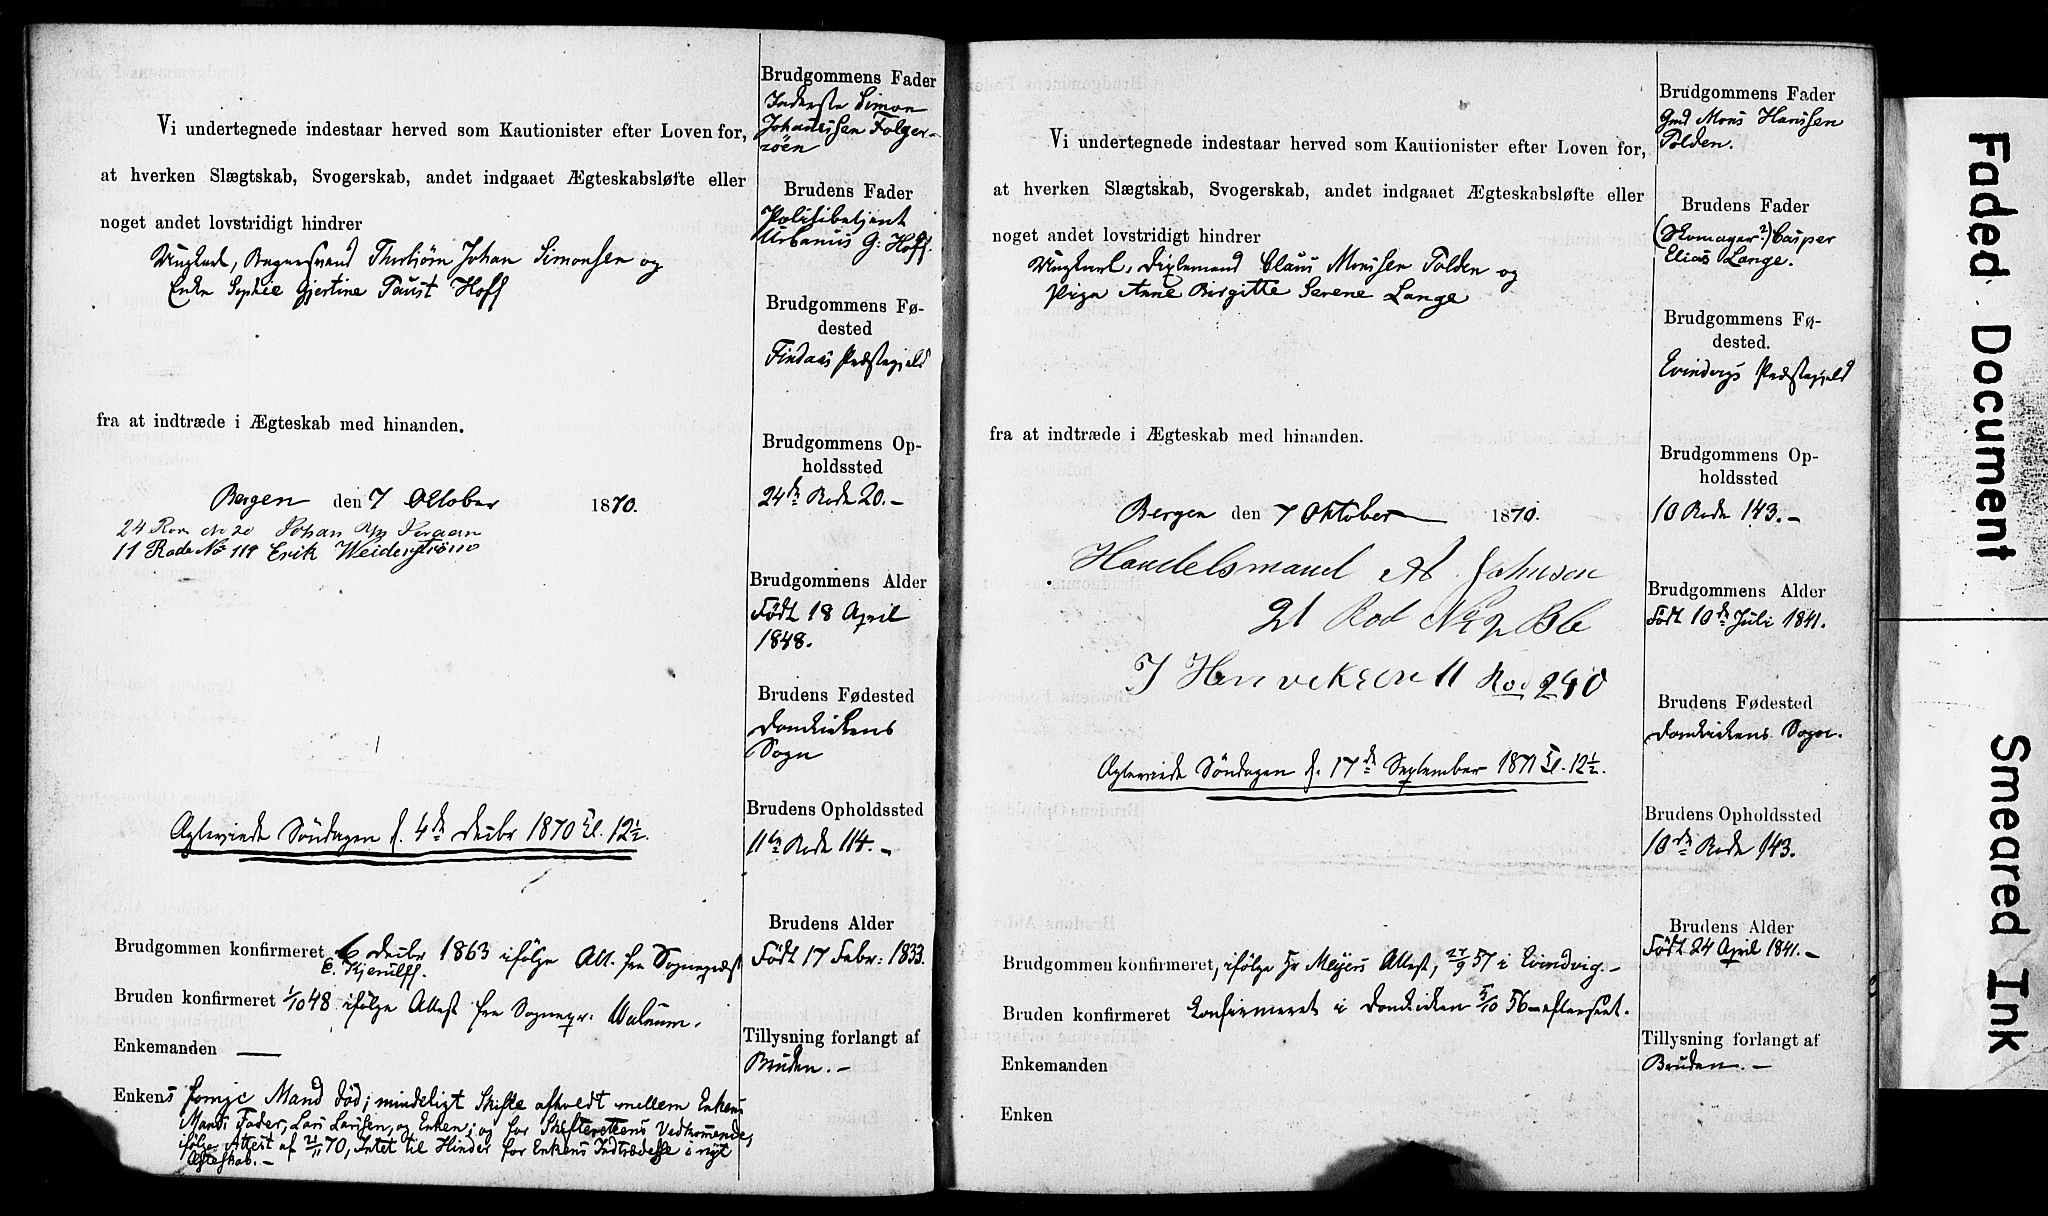 Vi undertegnede indestaar herved som Kautionister efter Loven for,
at hverken Slægtskab, Svogerskab, andet indgaaet Ægteskabsløfte eller
noget andet lovstridigt hindrer
Ungkarl, Bagersvend Thorbjörn Johan Simonsen og
Enke Sophie Gjertine Faust Hoff
fra at indtræde i Ægteskab med hinanden.
Bergen den 7 Oktober 1870.
24 Rode No 20 Johan
11 Rode No 119 Erik Weidenström
Aglysende Söndagen d. 4de Decbr 1870 Kl. 12½.
Brudgommen konfirmeret 6 Decbr 1863 ifölge Att. fra Sognepræst
E. Kjerulff.
Bruden konfirmeret 1/10 48 ifölge Attest fra Sognepr. Walnum.
Enkemanden —
Enkens forrige Mand död; mindeligt Skifte afholdt mellem Enkens
Mands Fader, Lars Larssen, og Enken; og for Skifterettens Vedkommende,
ifölge Attest af 21/11 70, Intet til Hinder for Enkens Indtrædelse i nyt
Ægteskab. —
Brudgommens Fader
Inderste Simon
Johannssen Folger-
röen
Brudens Fader
Politibetjent
Urbanus G. Hoff.
Brudgommens Fø-
desested
Findaas Præstegjeld
Brudgommens Op-
holdssted
24de Rode 20. —
Brudgommens Alder
Födt 18 April
1848.
Brudens Fødested
Domkirkens
Sogn
Brudens Opholdssted
11te Rode 114. —
Brudens Alder
Födt 17 Febr: 1833.
Tillysning forlangt af
Bruden. —
Vi undertegnede indestaar herved som Kautionister efter Loven for,
at hverken Slægtskab, Svogerskab, andet indgaaet Ægteskabsløfte eller
noget andet lovstridigt hindrer
Ungkarl, Claus Monssen Tolden og
Pige Anne Birgitte Serene Lange
fra at indtræde i Ægteskab med hinanden.
Bergen den 7 Oktober 1870.
Handelsmand A. Johnson
21 Rod No
J Henriksen 11 Rod 240
Söndagen d. 17de September 1871 Kl. 12½.
Brudgommen konfirmeret, ifölge Hr Meyers Attest, 27/9 57 i Evindvig. —
Bruden konfirmeret Konfirmeret i Domkirken 5/10 56 — efterseet.
Enkemanden
Enken
Brudgommens Fader
Gmd Mons Hanssen
Tolden.
Brudens Fader
(Skomager?) Casper
Elias Lange.
Brudgommens Fø-
dested.
Evindvigs Præstegjeld
Brudgommens Op-
holdssted
10 Rode 143. —
Brudgommens Alder
Födt 10de Juli 1841.
Brudens Fødested
Domkirkens Sogn.
Brudens Opholdssted
10de Rode 143.
Brudens Alder
Födt 24 April 1841. —
Tillysning forlangt af
Bruden. —
Faded Document
Smeared Ink